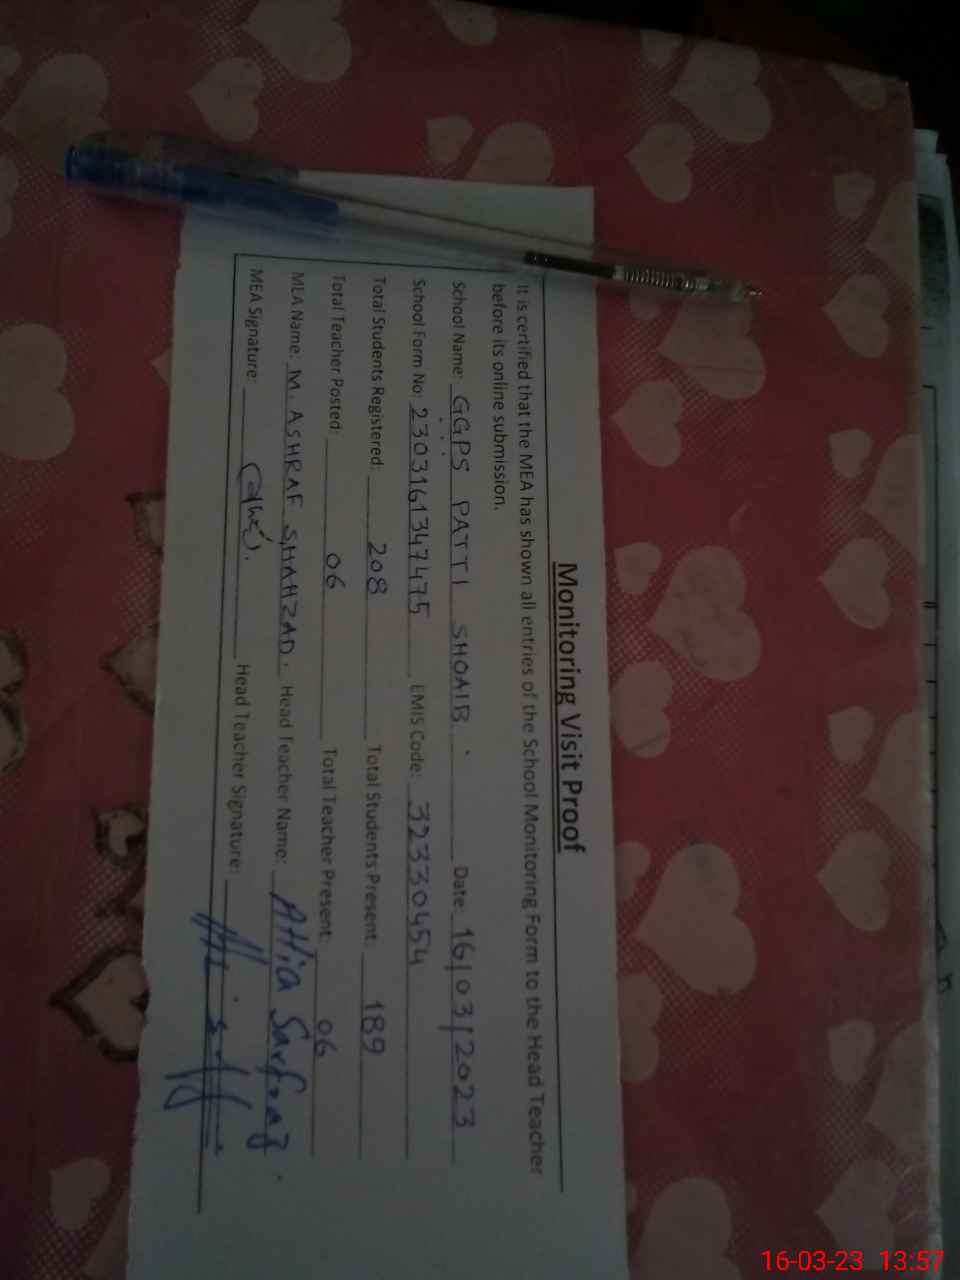 Monitoring Visit Proof
It is certified that the MEA has shown all entries of the School Monitoring Form to the Head Teacher
before its online submission.
School Name: GGPS PATTI SHOAIB. Date: 16/03/2023
School Form No: 2303161347475 EMIS Code: 32330454
Total Students Registered: 208 Total Students Present: 189
Total Teacher Posted: 06 Total Teacher Present: 06
MEA Name: M. ASHRAF SHAHZAD. Head Teacher Name: Attia Sarfraz.
MEA Signature: Head Teacher Signature:
16-03-23 13:57